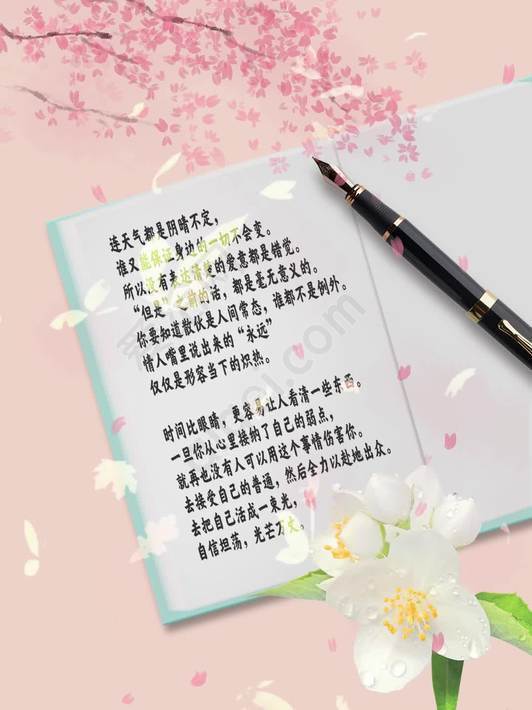 连天气都是阴晴不定，
谁又能保证身边的一切不会变。
所以没有表达清楚的爱意都是错觉。
“但是”之前的话，都是毫无意义的。
你要知道散伙是人间常态，谁都不是例外。
情人嘴里说出来的“永远”
仅仅是形容当下的炽热。
时间比眼睛，更容易让人看清一些东西。
一旦你从心里接纳了自己的弱点，
就再也没有人可以用这个事情伤害你。
去接受自己的普通，然后全力以赴地出众。
去把自己活成一束光，
自信坦荡，光芒万丈。